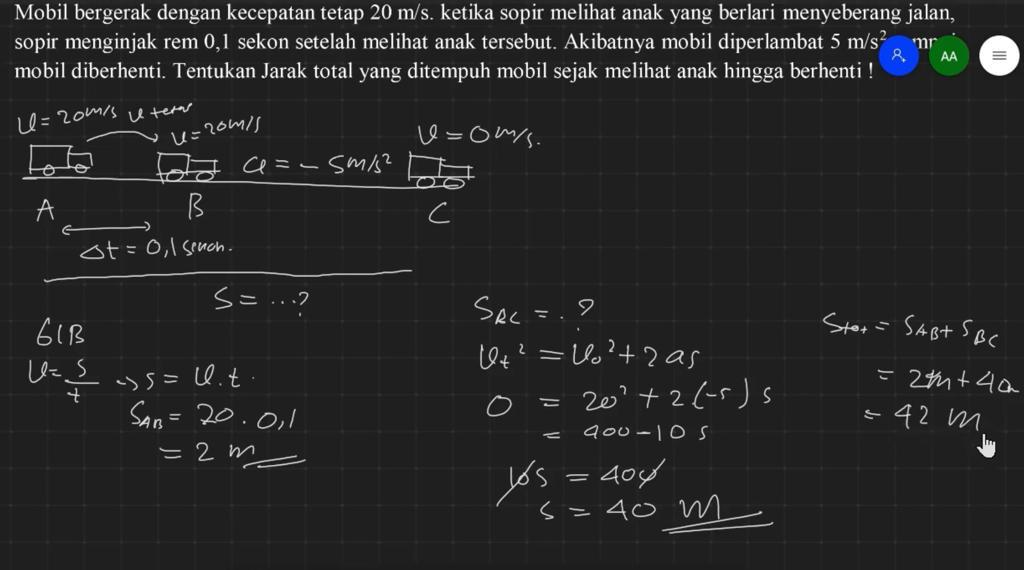 Mobil bergerak dengan kecepatan tetap 20 m/s. ketika sopir melihat anak yang berlari menyeberang jalan,
sopir menginjak rem 0,1 sekon setelah melihat anak tersebut. Akibatnya mobil diperlambat 5 m/s²
mobil diberhenti. Tentukan Jarak total yang ditempuh mobil sejak melihat anak hingga berhenti !
AA
V = 20 m/s v tetap
v = 20 m/s
a = - 5 m/s²
V = 0 m/s.
A
B
C
Δt = 0,1 sekon.
S = ...?
GLB
V = s/t -> s = V.t.
S_AB = 20 . 0,1
= 2 m
S_BC = . ?
V_t² = V_o² + 2 a s
0 = 20² + 2 (-5) s
= 400 - 10 s
10 s = 400
s = 40 m
S_tot = S_AB + S_BC
= 2m + 40
= 42 m